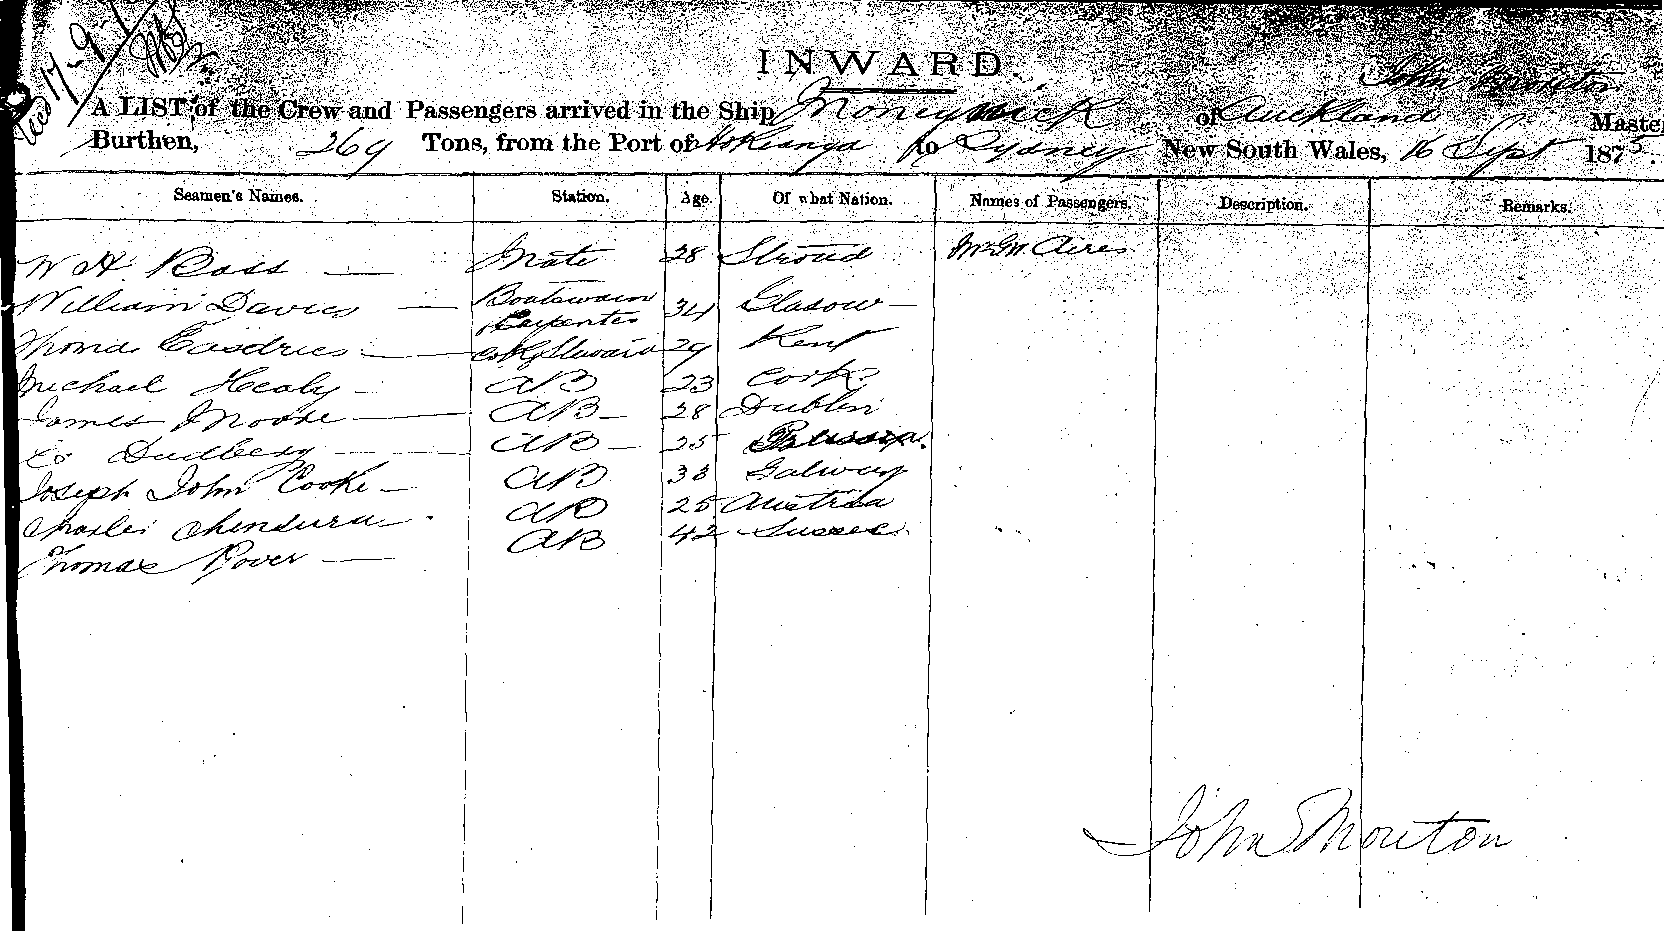 Recd 17-9-
INWARD.
John Mouton
A LIST of the Crew and Passengers arrived in the Ship Moneynick of Auckland Master
Burthen, 269 Tons, from the Port of Hokianga to Sydney New South Wales, 16 Sept 1875.
Seamen's Names. Station. Age. Of what Nation. Names of Passengers. Description. Remarks.
W H Ross — Mate 28 Stroud Aires
William Davies — Boatswain Carpenter 34 Glasow —
Thomas — Steward 29 Kent
Michael Healy — AB 23 Cork
James Moore — AB — 28 Dublin
Dudberg — AB — 25 Prussia.
Joseph John Cooke — AB 33 Galway
Charles AB 25 Austria
Thomas Rover — AB 42 Sussex
John Mouton